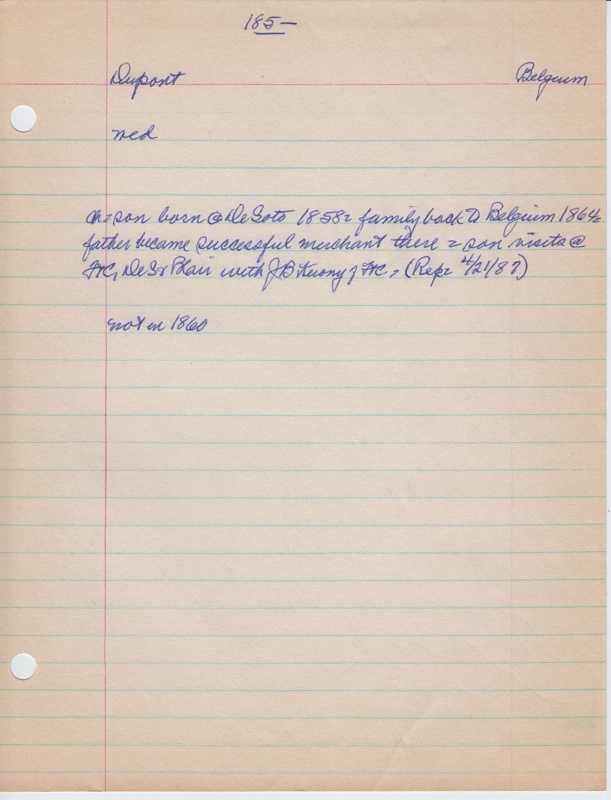 185-
Dupont Belgium
med
n= son born @ DeSoto 1858= family back to Belgium 1864=
father became successful merchant there = son visits @
FtC, DeS & Blair with J B Kuony of FtC, (Rep= 4/21/87)
not in 1860